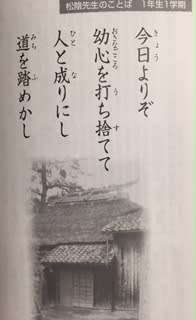 松陰先生のことば 1年生1学期
今日よりぞ
幼心を打ち捨てて
人と成りにし
道を踏めかし